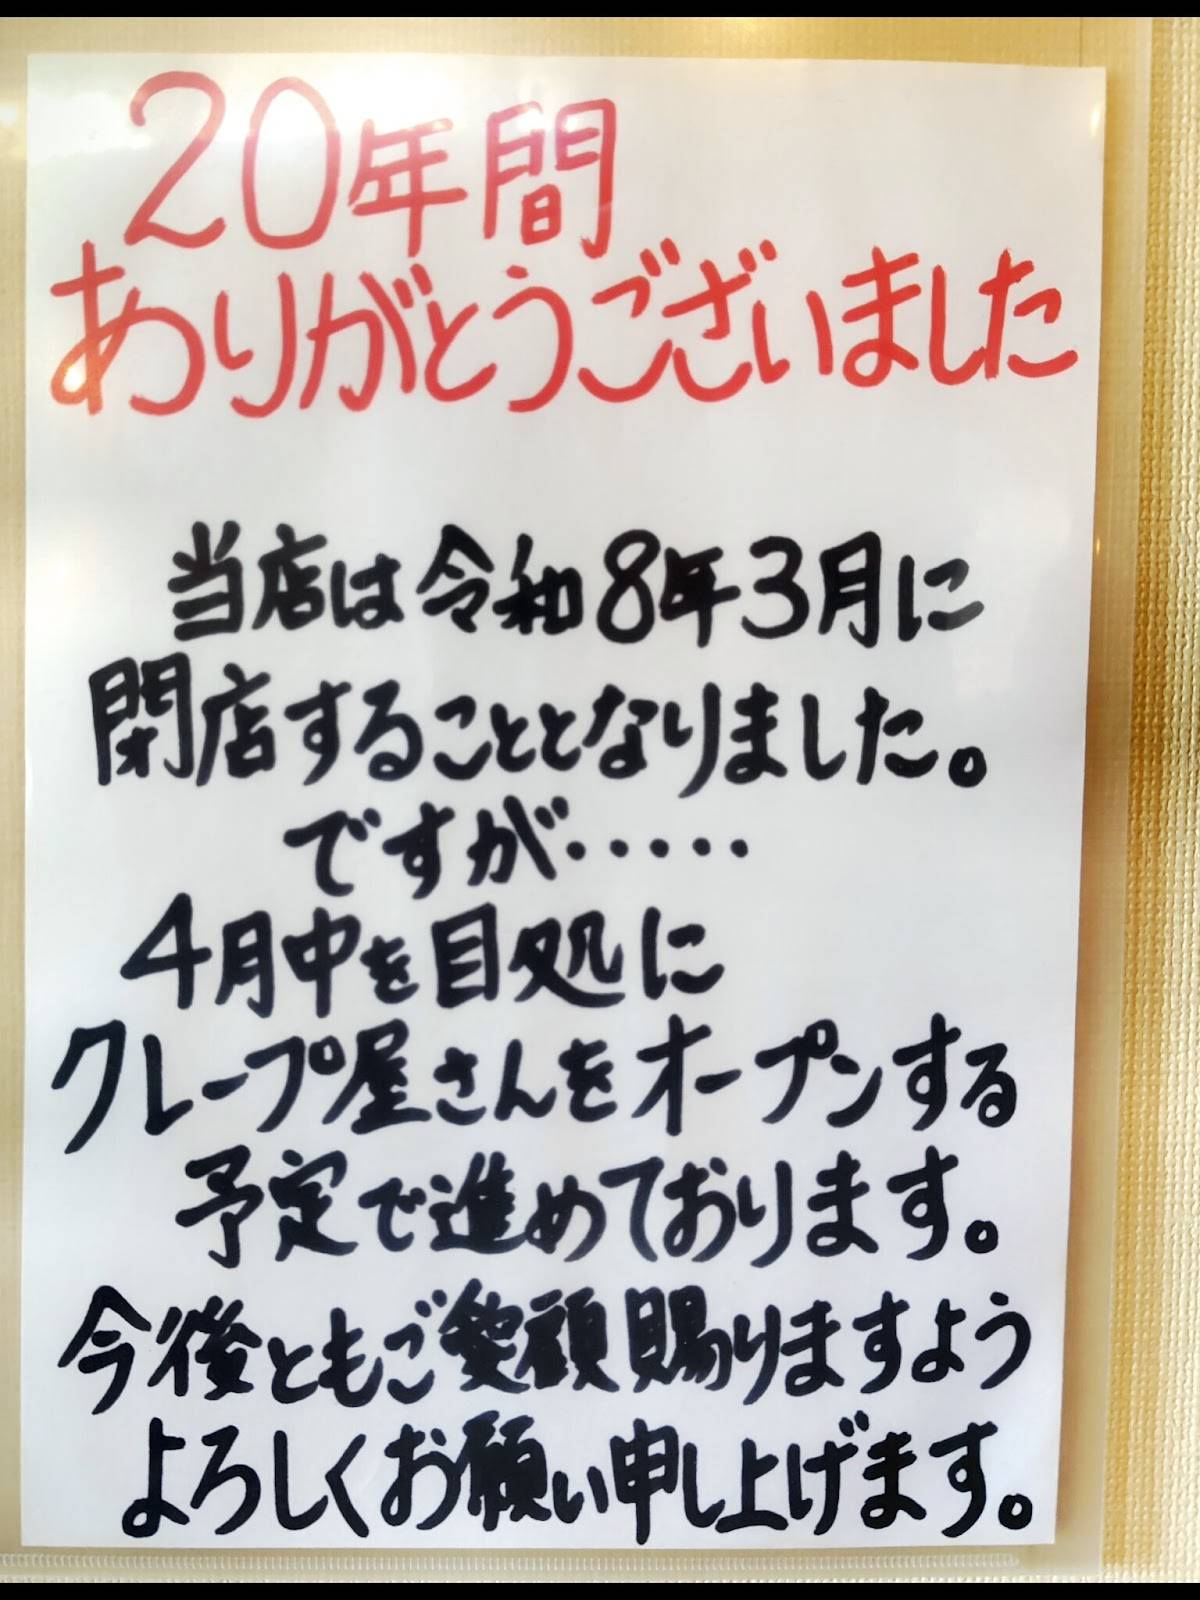 20年間
ありがとうございました
当店は令和8年3月に
閉店することとなりました。
ですが・・・・・
4月中を目処に
クレープ屋さんをオープンする
予定で進めております。
今後ともご愛顧賜りますよう
よろしくお願い申し上げます。